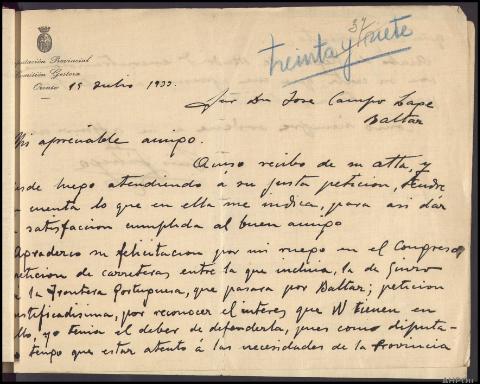 37
treinta y siete
putación Provincial
Comisión Gestora
Orense 19 Julio 1933.
Sr Dn Jose Campo Lage
Baltar
Mi apreciable amigo.
Acuso recibo de su atta, y
desde luego atendiendo á su justa peticion, tendre
cuenta lo que en ella me indica, para asi dár
satisfaccion cumplida al buen amigo
Agradezco su felicitacion por mi ruego en el Congreso
peticion de carreteras entre la que incluia, la de Ginzo
a la Frontera Portuguesa, que pasara por Baltar; peticion
justificadisima, por reconocer el interes que V tienen en
ello, yo tenia el deber de defenderla, pues como diputa-
tengo que estar atento á las necesidades de la Provincia